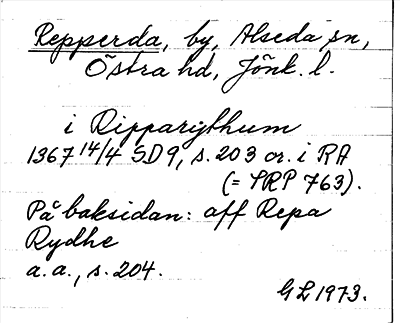 Repperda, by, Alseda sn,
Östra hd, Jönk. l.
i Ripparythum
1367 14/4 SD 9, s. 203 or. i RA
(= SRP 763).
På baksidan: aff Repa
Rydhe
a. a., s. 204.
GL 1973.